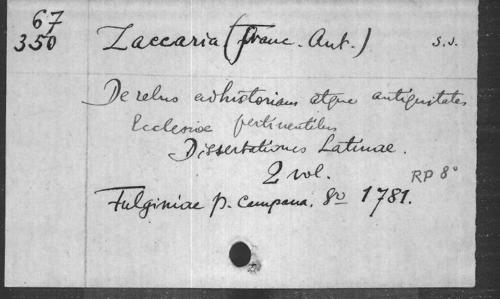 67
350
Zaccaria (Franc. Ant.) S.J.
De rebus ad historiam atque antiquitates
Ecclesiae pertinentibus
Dissertationes Latinae.
2 vol.
RP 8°
Fulginiae p. Campana. 8º 1781.